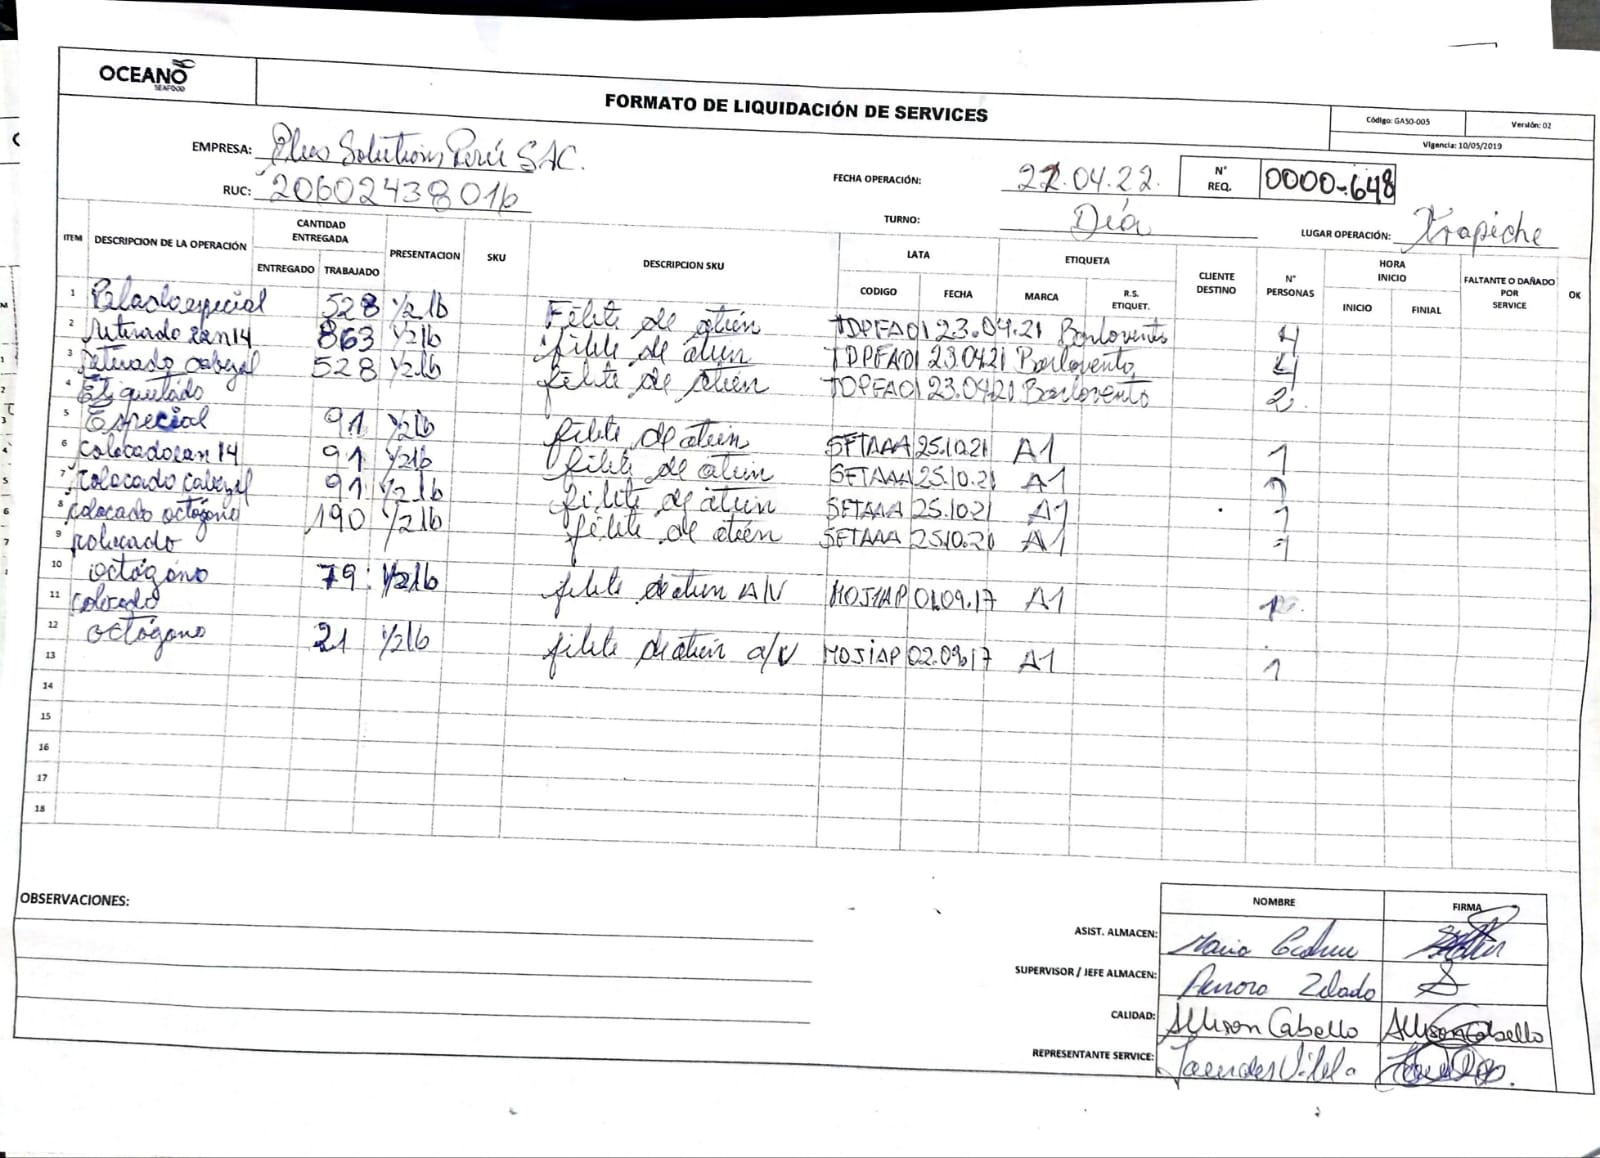 OCEANO
SEAFOOD
FORMATO DE LIQUIDACIÓN DE SERVICES
Código: GASO-005 Versión: 02
Vigencia: 10/05/2019
EMPRESA: Plus Solutions Perú SAC.
FECHA OPERACIÓN: 22.04.22. N° REQ. 0000-648
RUC: 20602438016
TURNO: Día LUGAR OPERACIÓN: Trapiche
ITEM DESCRIPCION DE LA OPERACIÓN CANTIDAD ENTREGADA PRESENTACION SKU DESCRIPCION SKU LATA ETIQUETA CLIENTE DESTINO N° PERSONAS HORA INICIO FALTANTE O DAÑADO POR SERVICE OK
ENTREGADO TRABAJADO CODIGO FECHA MARCA R.S. ETIQUET. INICIO FINIAL
1 Pelado especial 528 1/2 lb Filete de atún TDPFA01 23.04.21 Barlovento 4
2 retirado can 14 863 1/2 lb filete de atún TDPFA01 23.04.21 Barlovento 4
3 retirado cabezal 528 1/2 lb filete de atún TDPFA01 23.04.21 Barlovento 2
4 Etiquetado
5 Especial 91 1/2 lb filete de atún SFTAAA 25.10.21 A1 1
6 colocado can 14 91 1/2 lb filete de atún SFTAAA 25.10.21 A1 1
7 colocado cabezal 91 1/2 lb filete de atún SFTAAA 25.10.21 A1 1
8 colocado octógono 190 1/2 lb filete de atún SFTAAA 25.10.21 A1 1
9 colocado
10 octógono 79 1/2 lb filete de atún A/V MOJIAP 01.09.17 A1 1
11 colocado
12 octógono 21 1/2 lb filete de atún a/V MOJIAP 02.09.17 A1 1
13
14
15
16
17
18
OBSERVACIONES:
NOMBRE FIRMA
ASIST. ALMACEN: Mario
SUPERVISOR / JEFE ALMACEN:
CALIDAD: Allison Cabello Allison Cabello
REPRESENTANTE SERVICE: Vilela